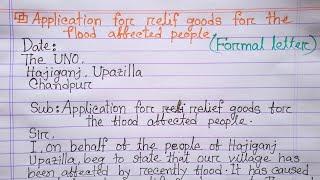 Application for relif goods for the
flood affected people.
(Formal letter)
Date:
The UNO.
Hajiganj, Upazilla
Chandpur
Sub: Application for reli relief goods for
the flood affected people.
Sir,
I, on behalf of the people of Hajiganj
Upazilla, beg to state that our village has
been affected by recently flood. It has caused